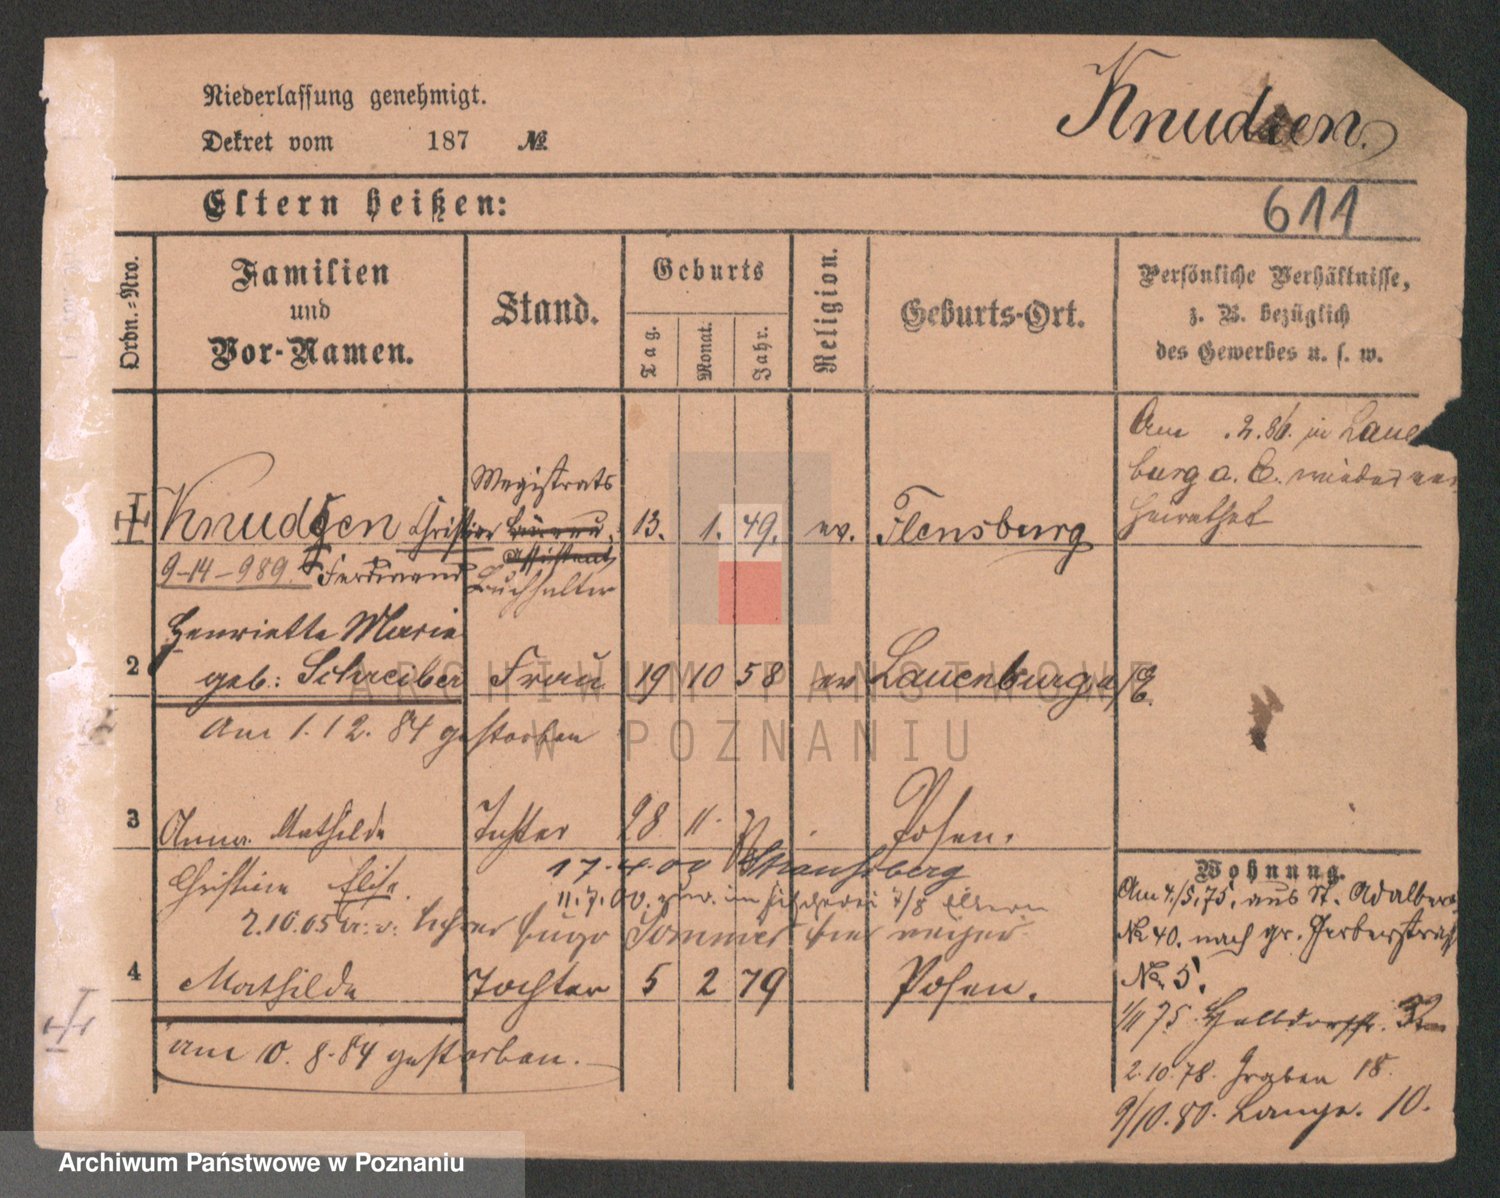 Niederlassung genehmigt.
Dekret vom 187 №
Knudsen.
Eltern heißen:
611
Ordn.-Nro.
Familien
und
Vor-Namen.
Stand.
Geburts
Tag.
Monat.
Jahr.
Religion.
Geburts-Ort.
Persönliche Verhältnisse,
z. B. bezüglich
des Gewerbes u. s. w.
Am .2.86. in Lauen
burg a. E. wieder ver
heirathet
1 Knudsen Christian Magistrats Bureau 13. 1. 49. ev. Flensburg
Assistent
9-14-989. Ferdinand Buchhalter
Henriette Marie
2 geb: Schreiber Frau 19 10 58 ev Lauenburg a/E.
Am 1. 12. 84 gestorben
3 Anna Mathilde Tochter 28 11. Posen.
Christine Elise. 17.4.00 Straußberg
11.7.00. zur. im
2.10.05 Lehrer Hugo Sommer hier
4 Mathilde Tochter 5 2 79 Posen.
am 10. 8. 84 gestorben.
Wohnung.
Am 4./5.75. aus St. Adalbert
No 40. nach gr. Gerberstraße
No 5.
1/11 75 Halbdorfstr. 32
2.10.78. Graben 18.
9/10.80. Langes. 10.
ARCHIWUM PAŃSTWOWE
W POZNANIU
Archiwum Państwowe w Poznaniu